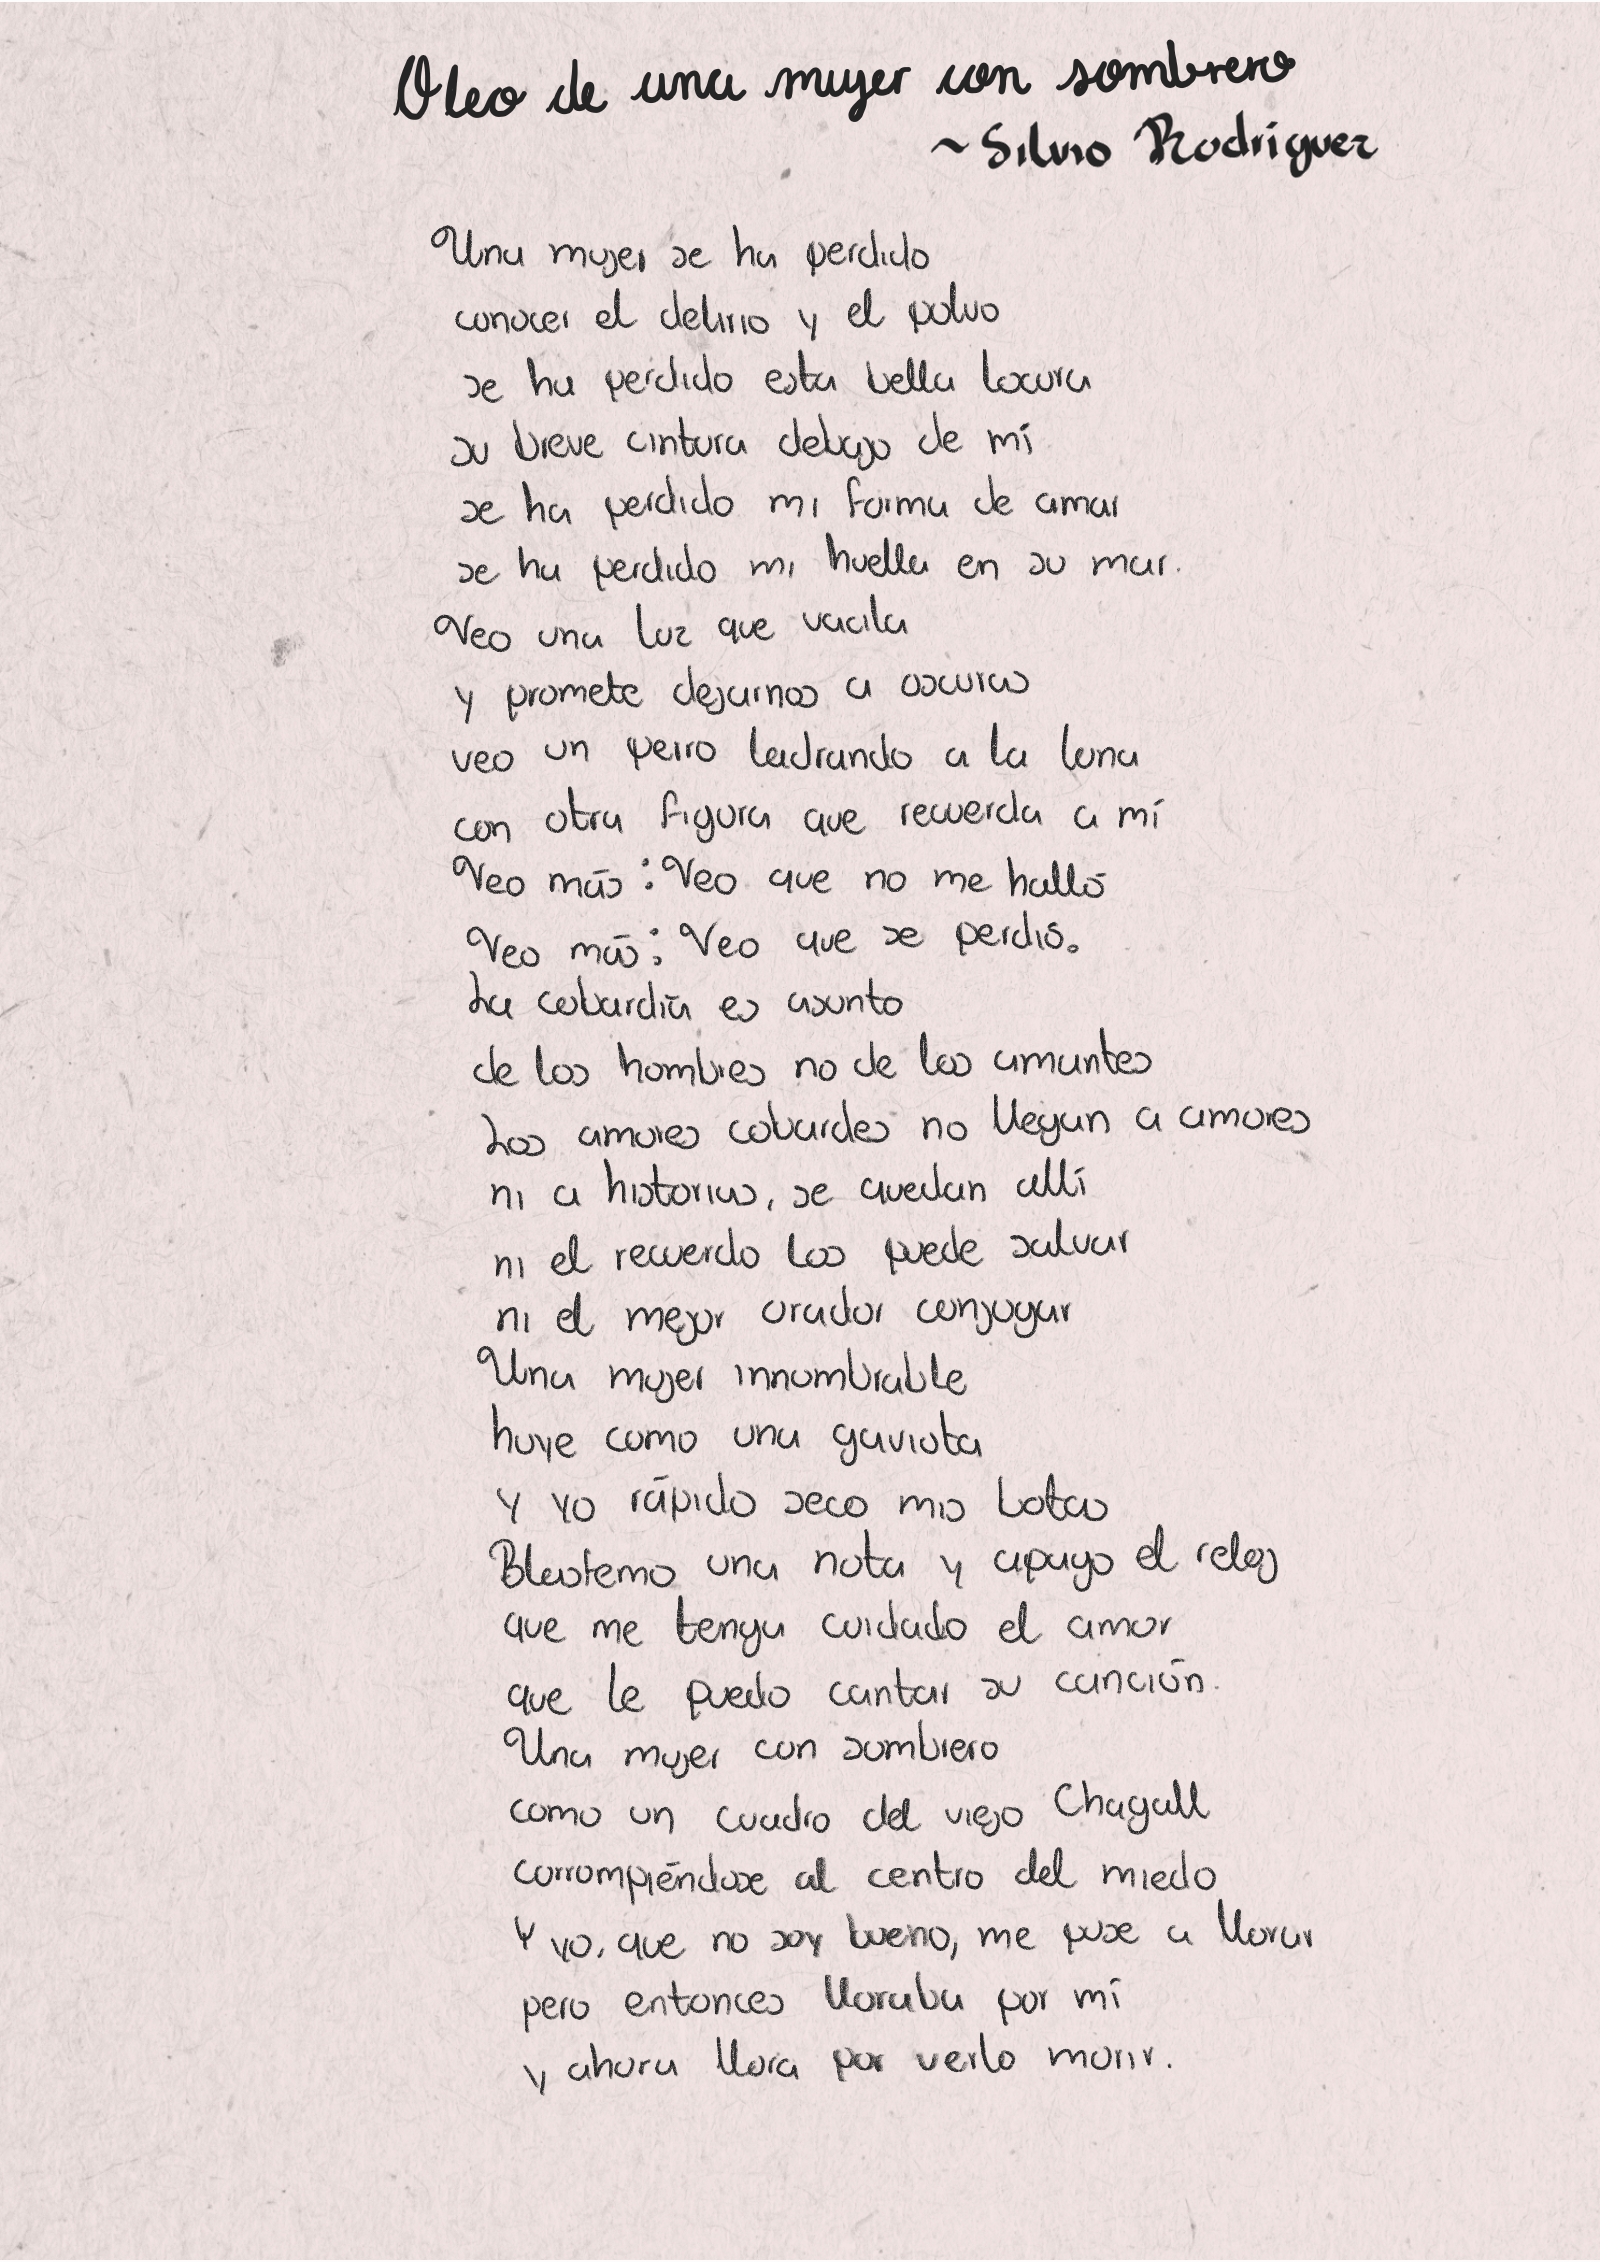 Oleo de una mujer con sombrero
~Silvio Rodríguez
Una mujer se ha perdido
conocer el delirio y el polvo
se ha perdido esta bella locura
su breve cintura debajo de mí
se ha perdido mi forma de amar
se ha perdido mi huella en su mar.
Veo una luz que vacila
y promete dejarnos a oscuras
veo un perro ladrando a la luna
con otra figura que recuerda a mí
Veo más: Veo que no me halló
Veo más; Veo que se perdió.
La cobardía es asunto
de los hombres no de los amantes
Los amores cobardes no llegan a amores
ni a historias, se quedan allí
ni el recuerdo los puede salvar
ni el mejor orador conjugar
Una mujer innombrable
huye como una gaviota
y yo rápido seco mis botas
Blasfemo una nota y apago el reloj
que me tenga cuidado el amor
que le puedo cantar su canción.
Una mujer con sombrero
como un cuadro del viejo Chagall
corrompiéndose al centro del miedo
Y yo, que no soy bueno, me puse a llorar
pero entonces lloraba por mí
y ahora llora por verlo morir.